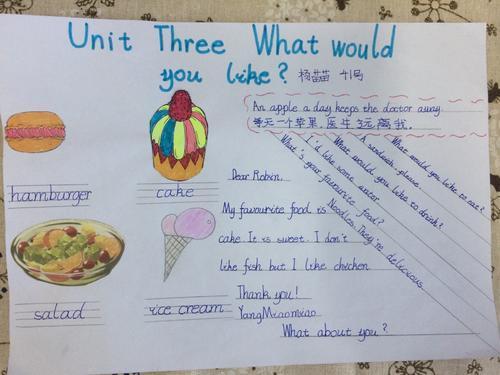 Unit Three What would
you like? 杨苗苗 41号
An apple a day keeps the doctor away
每天一个苹果,医生远离我。
What would you like to eat?
A sandwich, please
What would you like to drink?
I'd like some water
What's your favourite food?
Noodles. They're delicious.
hamburger
cake
salad
ice cream
Dear Robin,
My favourite food is
cake. It is sweet. I don't
like fish but I like chicken.
Thank you!
YangMiaomiao
What about you?